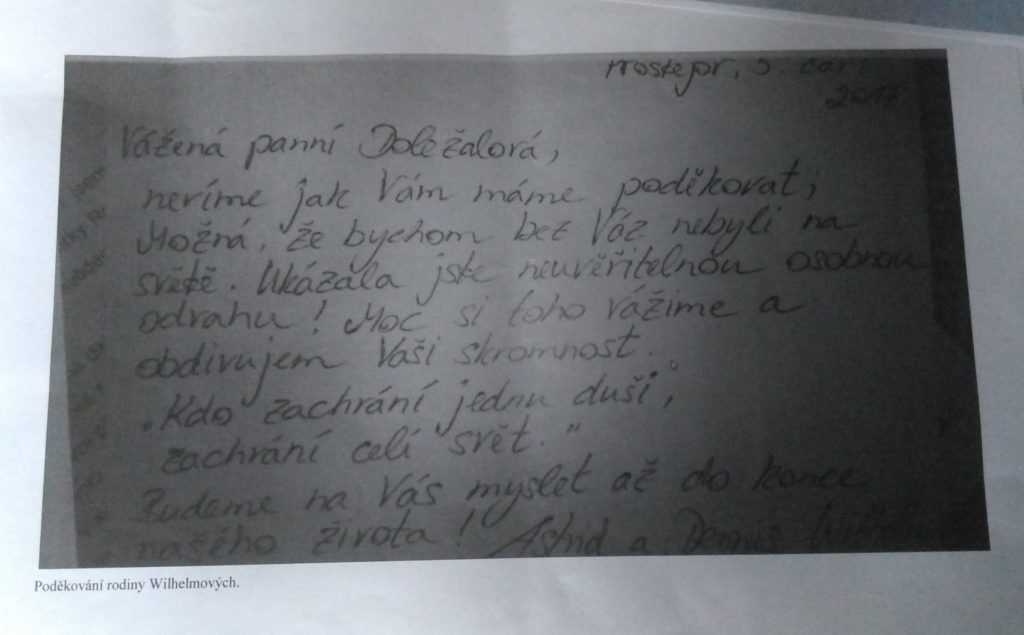 Prostejov, 5. září
2017
Vážená panní Doležalová,
neríme jak Vám máme poděkovat;
Možná, že bychom bez Váz nebyli na
světě. Ukázala jste neuvěřitelnou osobnou
odvahu! Moc si toho vážime a
obdivujem Vaši skromnost.
„Kdo zachrání jednu duši,
zachrání celí svět."
Budeme na Vás myslet až do konce
našeho života! Astrid a Dennis
Poděkování rodiny Wilhelmových.